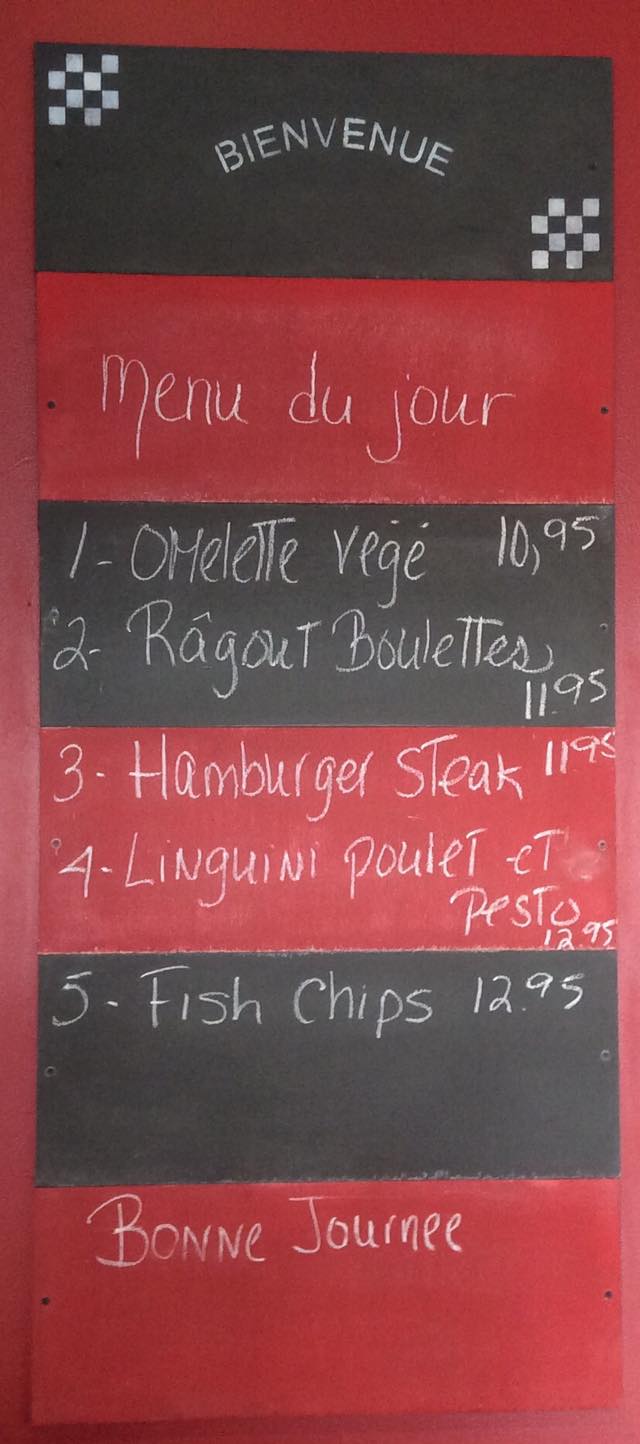 BIENVENUE
Menu du jour
1- Omelette végé 10,95
2- Râgout Boulettes
11.95
3- Hamburger Steak 11.95
4- Linguini poulet et
Pesto
12.95
5- Fish Chips 12.95
Bonne Journee